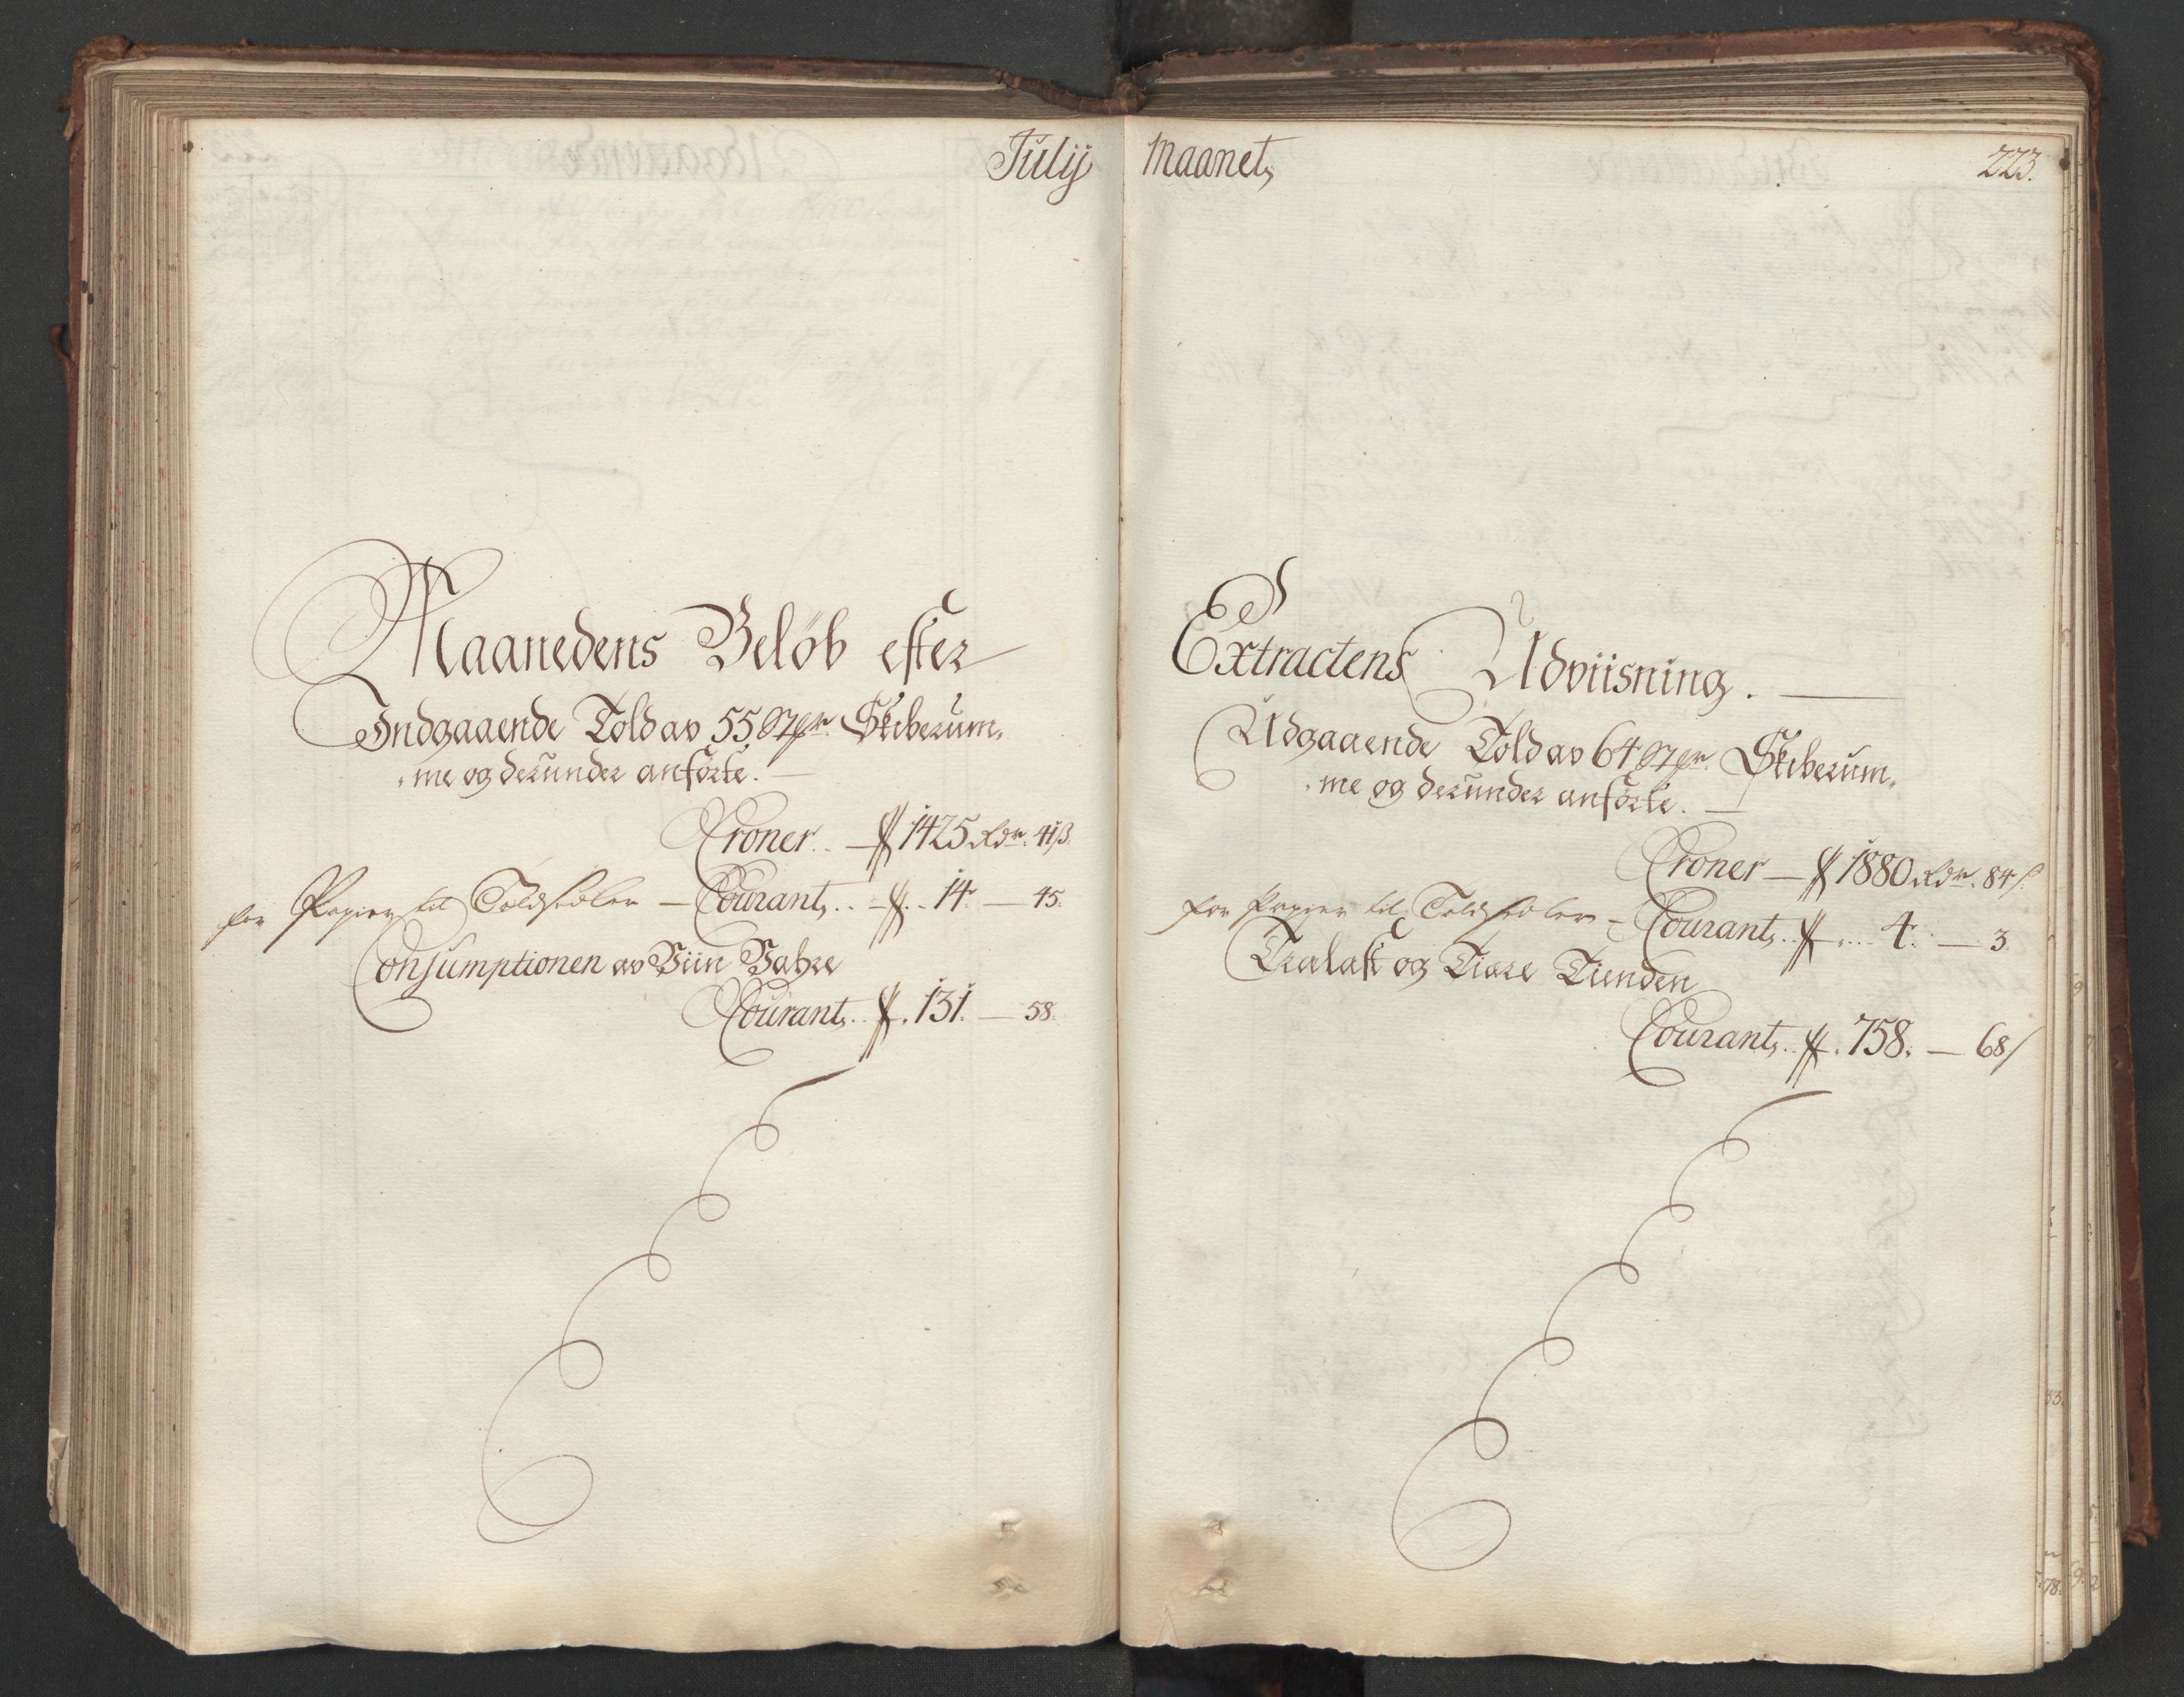 Julij Maanet, 223.
Maanedens Beløb efter
Indgaaende Told av 55 Skiberum,
,me og derunder anførte.
Croner. — 1425 Rdr. 41ß.
for Papier til Toldsedler — Courant, . . 14. — 45.
Consumptionen av Viin Vahre
Courant, . . 131. — 58.
Extractens Udviisning. —
Udgaaende Told av 64 Skiberum,
,me og derunder anførte. —
Croner — 1880 Rdr. 84ß
for Papier til Toldsedler — Courant, . . 4. — 3.
Tralast og Tiære Tienden
Courant, . . 758. — 68ß